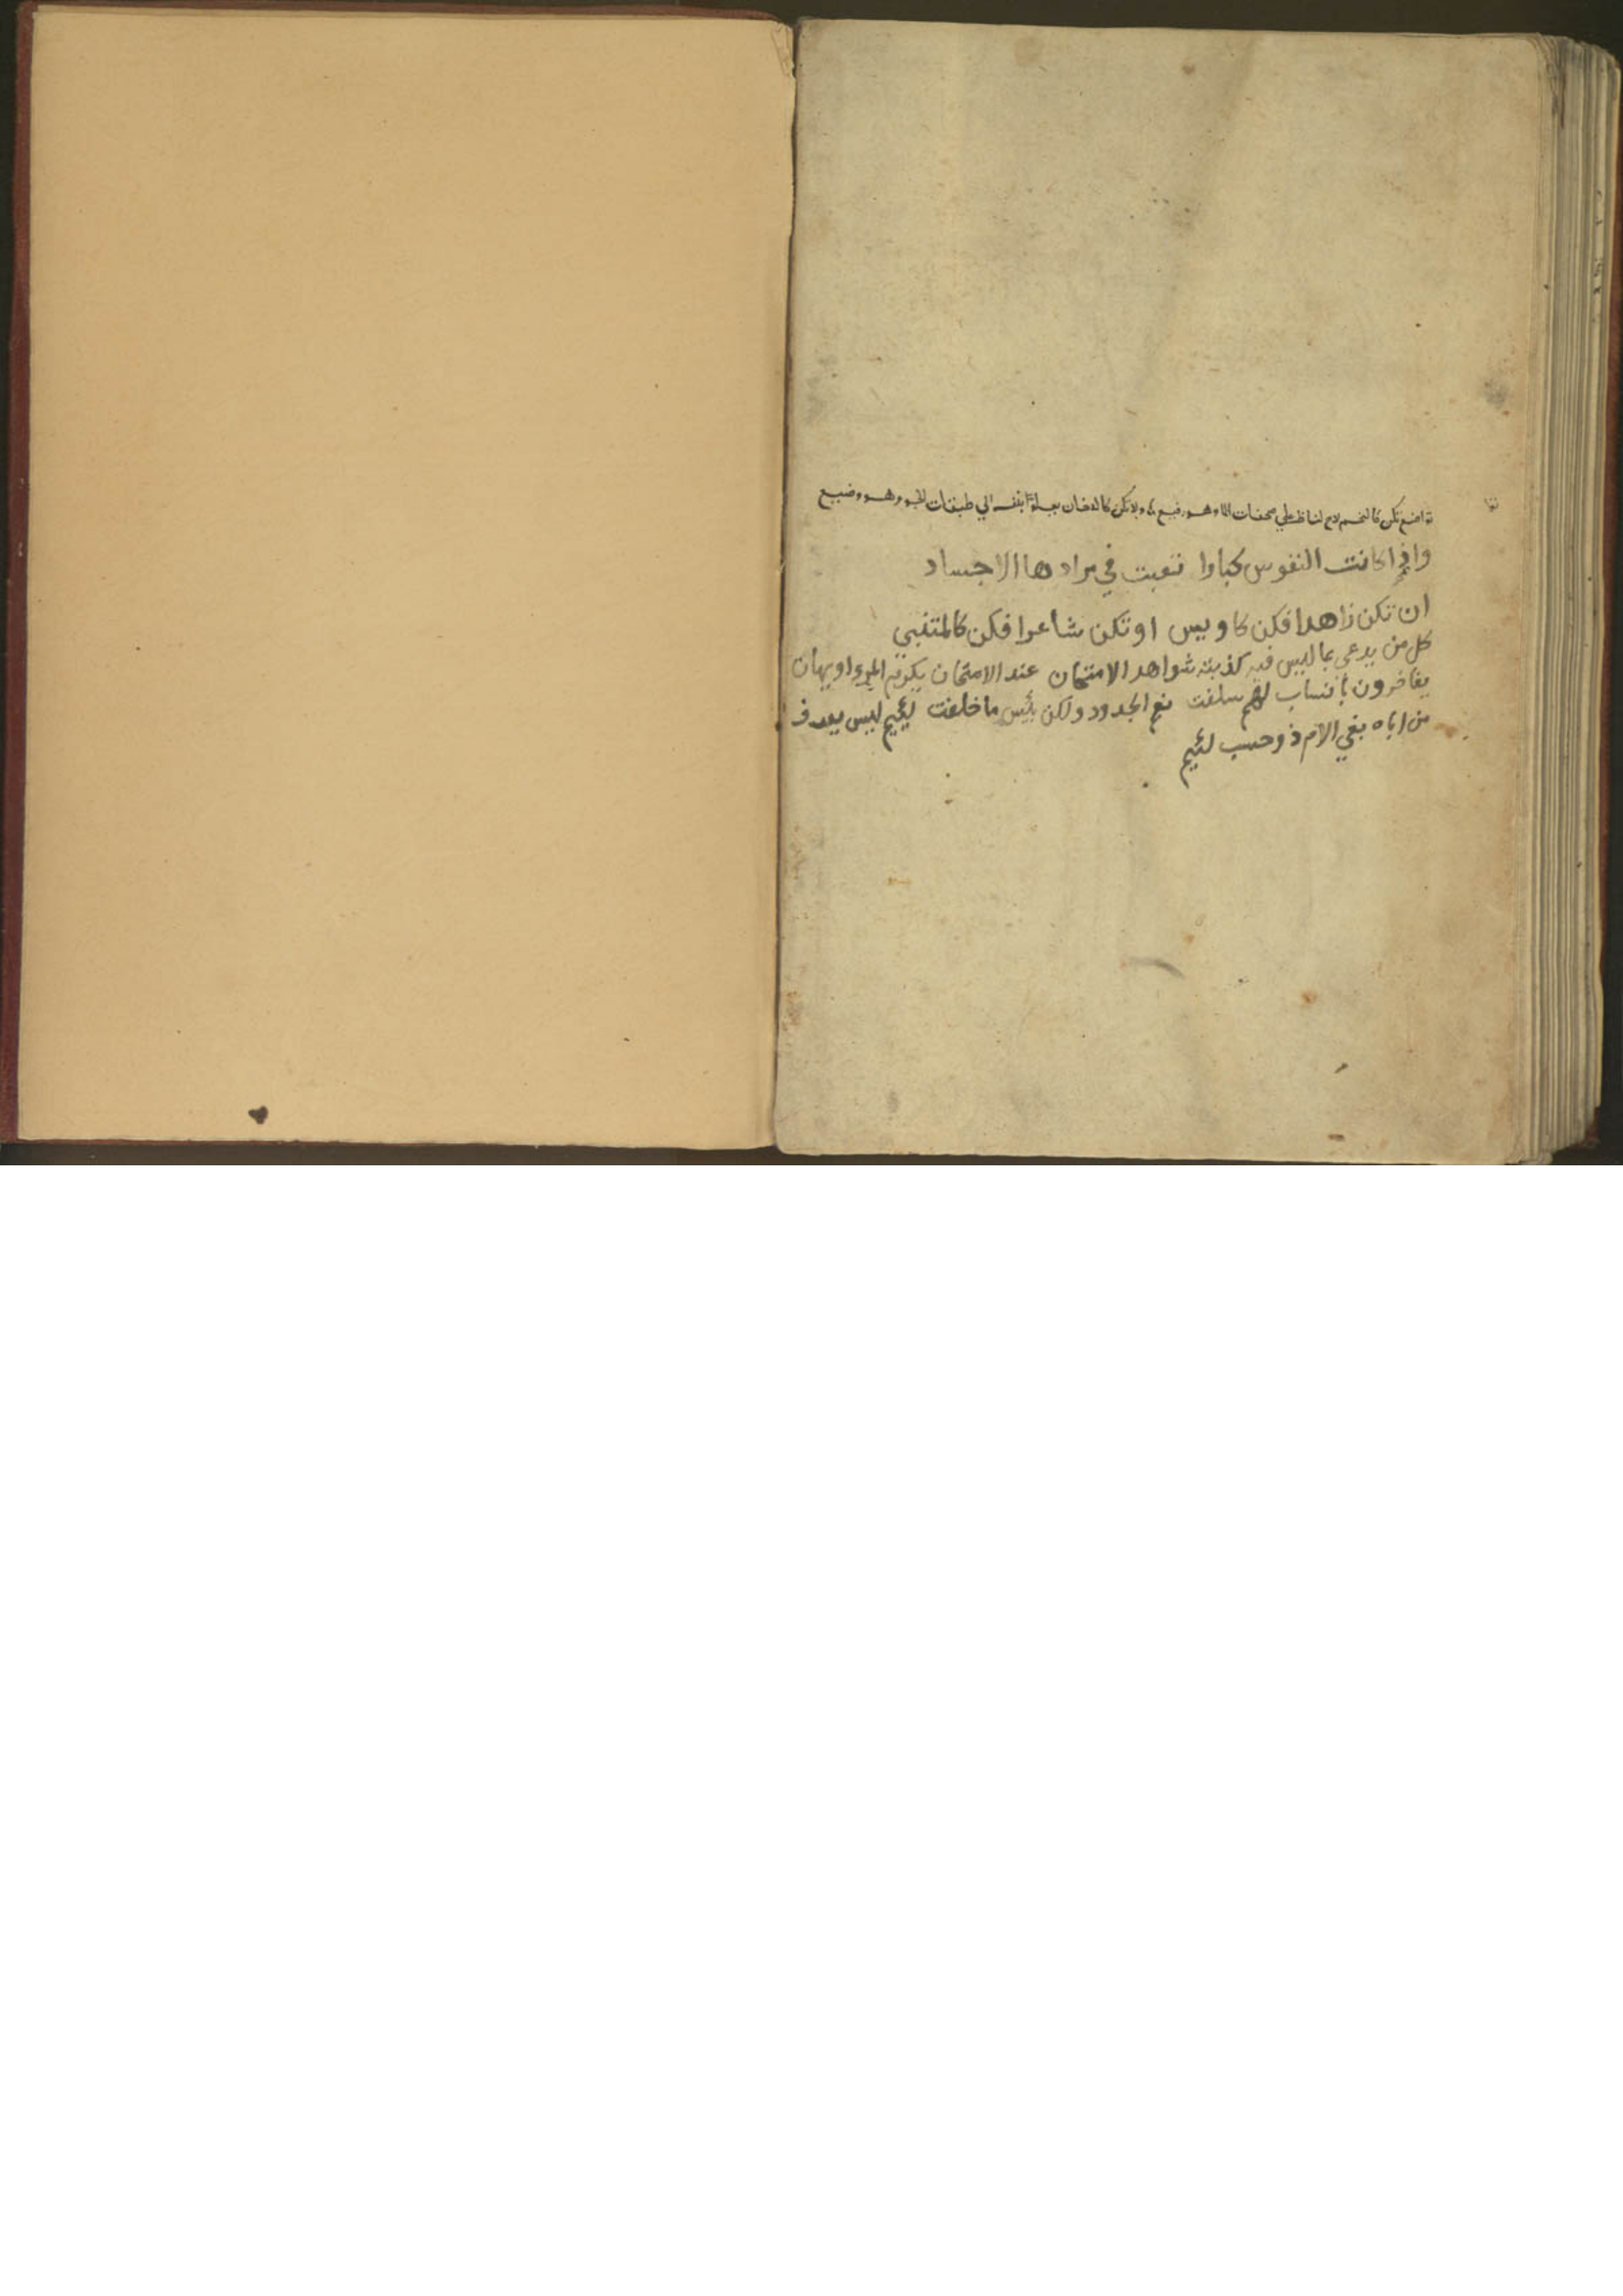 تواضع تكن كالنجم لاح لناظر على صفحات الماء وهو رفيع ولا تكن كالدخان يعلو بنفسه الي طبقات الجو وهو وضيع
واذا كانت النفوس كبارا تعبت في مرادها الاجساد
ان تكن زاهدا فكن كاويس او تكن شاعرا فكن كالمتنبي
كل من يدعي بما ليس فيه كذبته شواهد الامتحان عند الامتحان يكرم المرء او يهان
يفاخرون بانساب لهم سلفت نعم الجدود ولكن بئس ما خلفت لئيم ليس يعرف
من اباه بغي الام ذو حسب لئيم